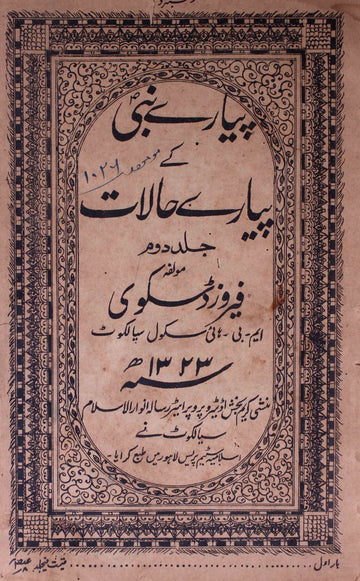 پیارے نبیؐ
کے
پیارے حالات
جلد دوم
مولفہ
فیروز ڈسکوی
ایم۔ بی۔ ہائی سکول سیالکوٹ
سنہ ۱۳۲۳ھ
منشی کریم بخش اڈیٹر و پروپرائیٹر رسالہ انوار الاسلام
سیالکوٹ نے
اسلامیہ سٹیم پریس لاہور میں طبع کرایا۔
بار اول
قیمت فیجلد